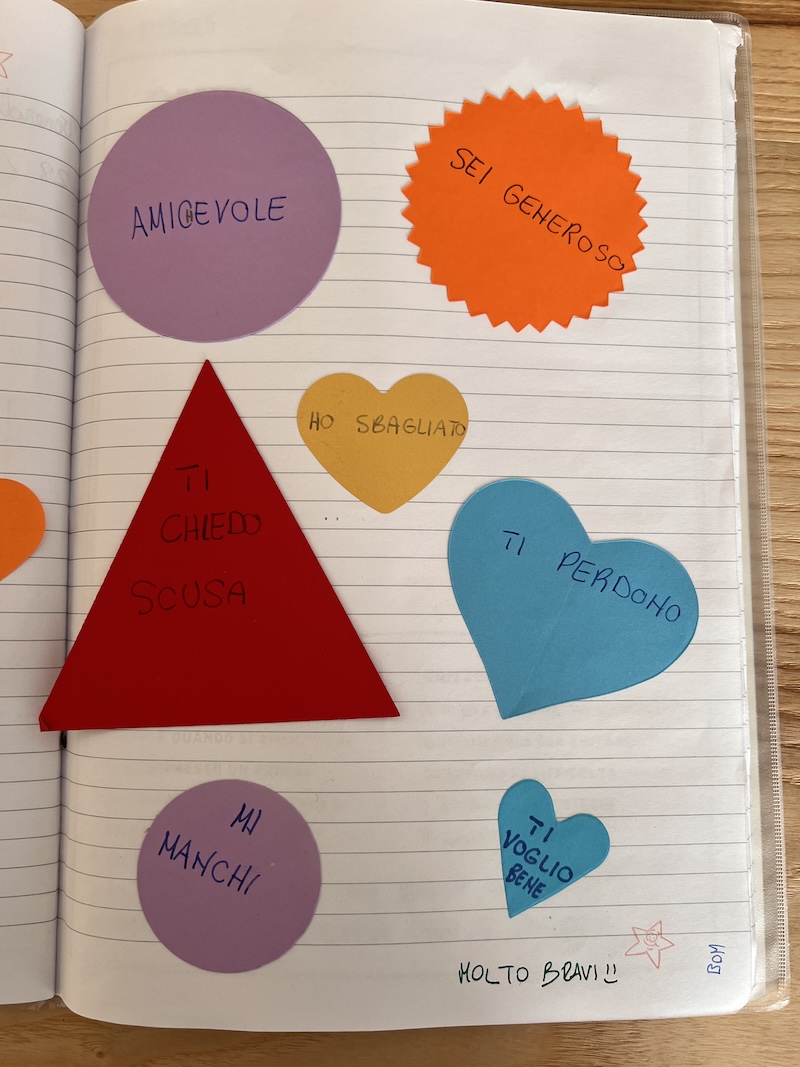 AMICHEVOLE
SEI GENEROSO
HO SBAGLIATO
TI
CHIEDO
SCUSA
TI PERDONO
MI
MANCHI
TI
VOGLIO
BENE
MOLTO BRAVI!!
BOM